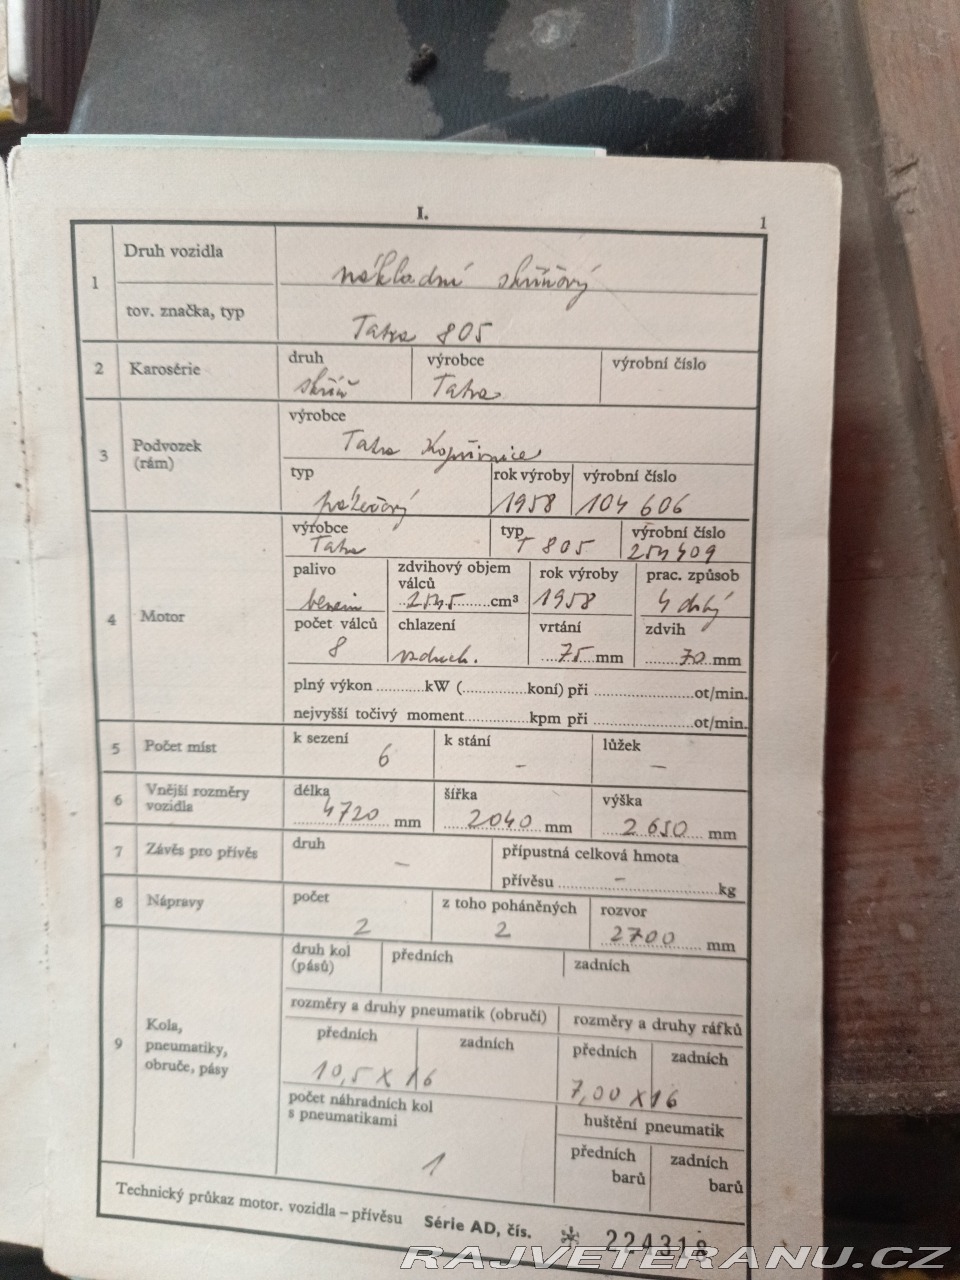 I.
1
1 Druh vozidla nákladní skříňový
tov. značka, typ Tatra 805
2 Karosérie druh výrobce výrobní číslo
skříň Tatra
3 Podvozek (rám) výrobce
Tatra Kopřivnice
typ rok výroby výrobní číslo
1958 104 606
4 Motor výrobce typ výrobní číslo
Tatra T 805
palivo zdvihový objem válců rok výroby prac. způsob
benzin 2545 cm³ 1958 4 dobý
počet válců chlazení vrtání zdvih
8 vzduch. 75 mm 70 mm
plný výkon ...........kW (............koní) při ..................ot/min.
nejvyšší točivý moment............kpm při ..................ot/min.
5 Počet míst k sezení k stání lůžek
6 – –
6 Vnější rozměry vozidla délka šířka výška
4720 mm 2040 mm 2650 mm
7 Závěs pro přívěs druh přípustná celková hmota
– přívěsu – kg
8 Nápravy počet z toho poháněných rozvor
2 2 2700 mm
9 Kola, pneumatiky, obruče, pásy druh kol (pásů) předních zadních
rozměry a druhy pneumatik (obručí) rozměry a druhy ráfků
předních zadních předních zadních
10,5 X 16 7,00 X 16
počet náhradních kol s pneumatikami huštění pneumatik
1 předních zadních
barů barů
Technický průkaz motor. vozidla – přívěsu Série AD, čís. 224318
RAJVETERANU.CZ